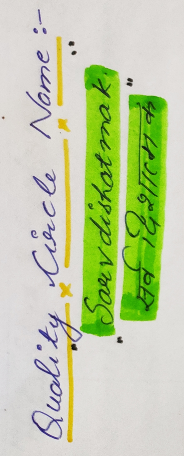 Quality Circle Name :-
"Sarvdishatmak"
"सर्व दिशात्मक"